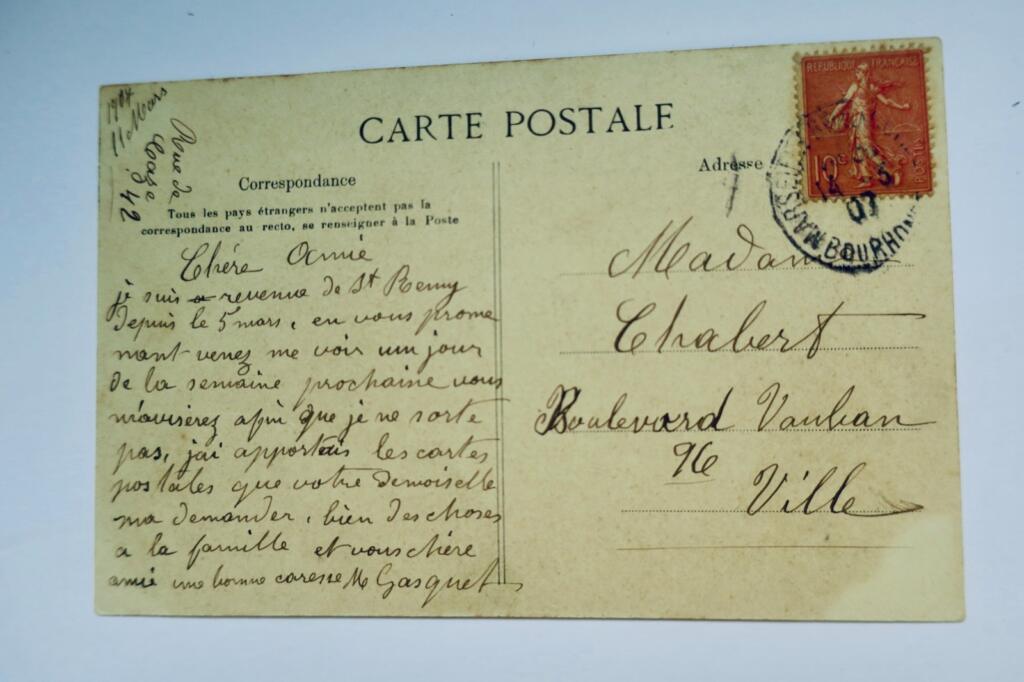 1904
11 Mars
Rue de
Coza
42
CARTE POSTALE
Correspondance
Tous les pays étrangers n'acceptent pas la
correspondance au recto, se renseigner à la Poste
Chére Amié
je suis a revenue de St Remy
depuis le 5 mars, en vous prome
nant venez me voir un jour
de la semaine prochaine vous
m'aviserez afin que je ne sorte
pas, jai apportais les cartes
postales que votre demoiselle
ma demander, bien des choses
a la famille et vous chère
amié une bonne caresse M Gasquet
Adresse
REPUBLIQUE FRANÇAISE
10c
POSTES
MARSEILLE
14 3
07
BOUCHES DU RHONE
Madame
Chabert
Boulevard Vauban
96
Ville